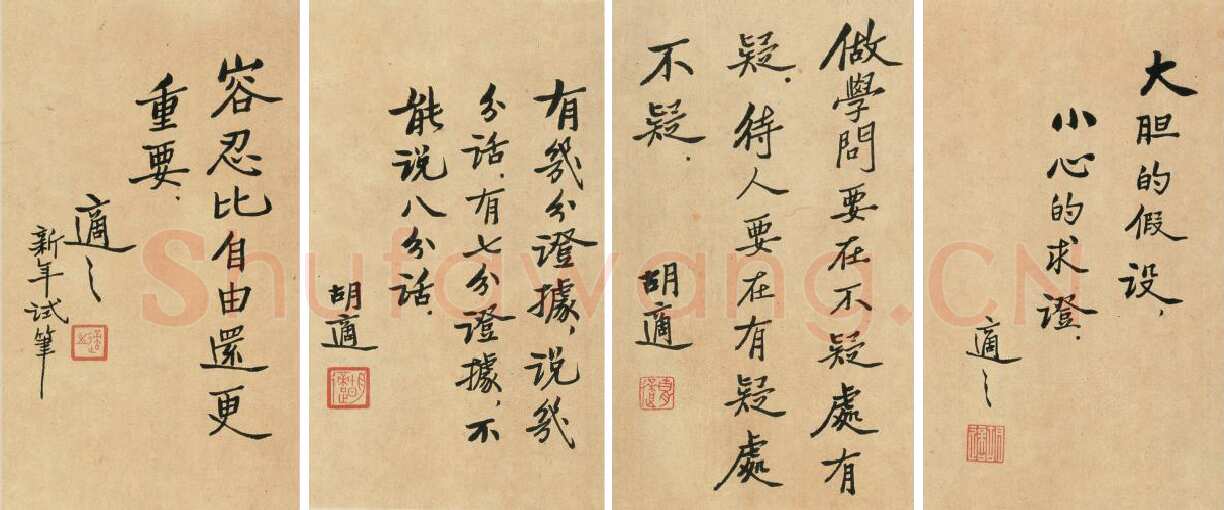 大胆的假设,
小心的求證.
適之
做學問要在不疑處有
疑.待人要在有疑處
不疑.
胡適
有幾分證據,说幾
分话.有七分證據,不
能说八分话.
胡適
容忍比自由還更
重要.
適之
新年试筆
Shufawang.CN